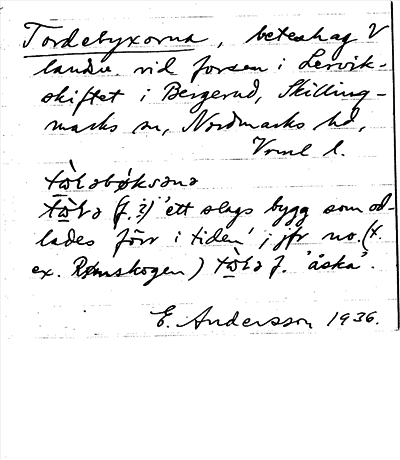 Tordebyxorna, beteshag V
landsv. vid forsen i Lervik-
skiftet i Bergerud, Skilling-
marks sn, Nordmarks hd,
Vrml l.
tɷ̀ɽəbøksəna
tɷ̀ɽə (f.?) 'ett slags bygg som od-
lades förr i tiden'; jfr no. (t.
ex. Rømskogen) tɷ̀ɽə f. 'åska'.
E. Andersson 1936.